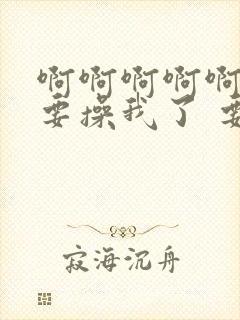 啊啊啊啊啊
要操我了 要
寂海沉舟